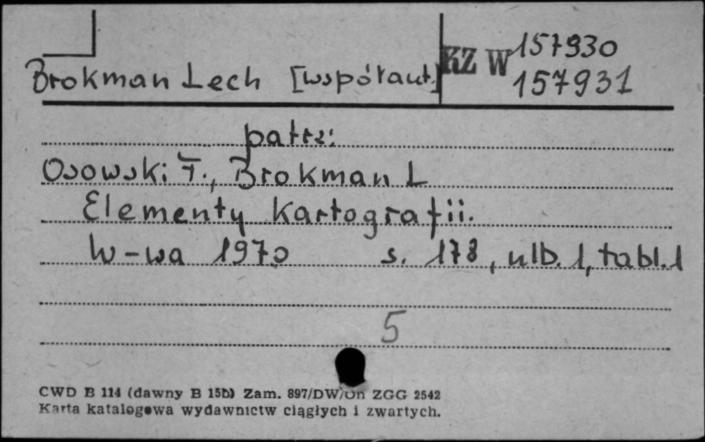 Brokman Lech [współaut.]
KZ W 157930
157931
patrz:
Osowski F., Brokman L
Elementy kartografii.
W-wa 1970 s. 178, nlb. 1, tabl. 1
5
CWD B 114 (dawny B 15b) Zam. 897/DW/Dn ZGG 2542
Karta katalogowa wydawnictw ciągłych i zwartych.